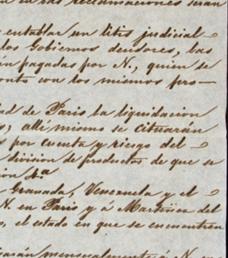 en las reclamaciones serán
entablar un litis judicial
los Gobiernos deudores, las
án pagadas por N., quien se
onto con los mismos pro-
ad de Paris la liquidacion
s, alli mismo se situarán
s por cuenta y riesgo del
division de productos de que se
ion 4.ª
Granada, Venezuela y el
N. en Paris y á Martinez del
s, el estado en que se encuentran
mensualmente á N. en